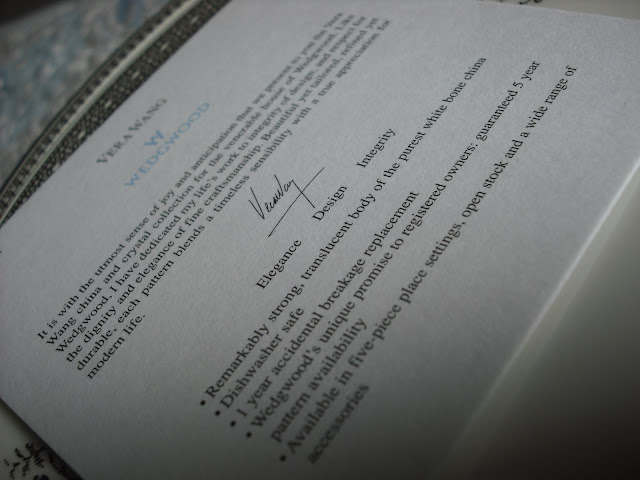 VERA WANG
W
WEDGWOOD
It is with the utmost sense of joy and anticipation that we present to you the Vera
Wang china and crystal collection for the venerable house of Wedgwood. Like
Wedgwood, I have dedicated my life's work to integrity of design, and respect for
the dignity and elegance of fine craftsmanship. Beautiful yet tailored, refined yet
durable, each pattern blends a timeless sensibility with a true appreciation for
modern life.
Vera Wang
Elegance Design Integrity
• Remarkably strong, translucent body of the purest white bone china
• Dishwasher safe
• 1 year accidental breakage replacement
• Wedgwood's unique promise to registered owners: guaranteed 5 year
pattern availability
• Available in five-piece place settings, open stock and a wide range of
accessories